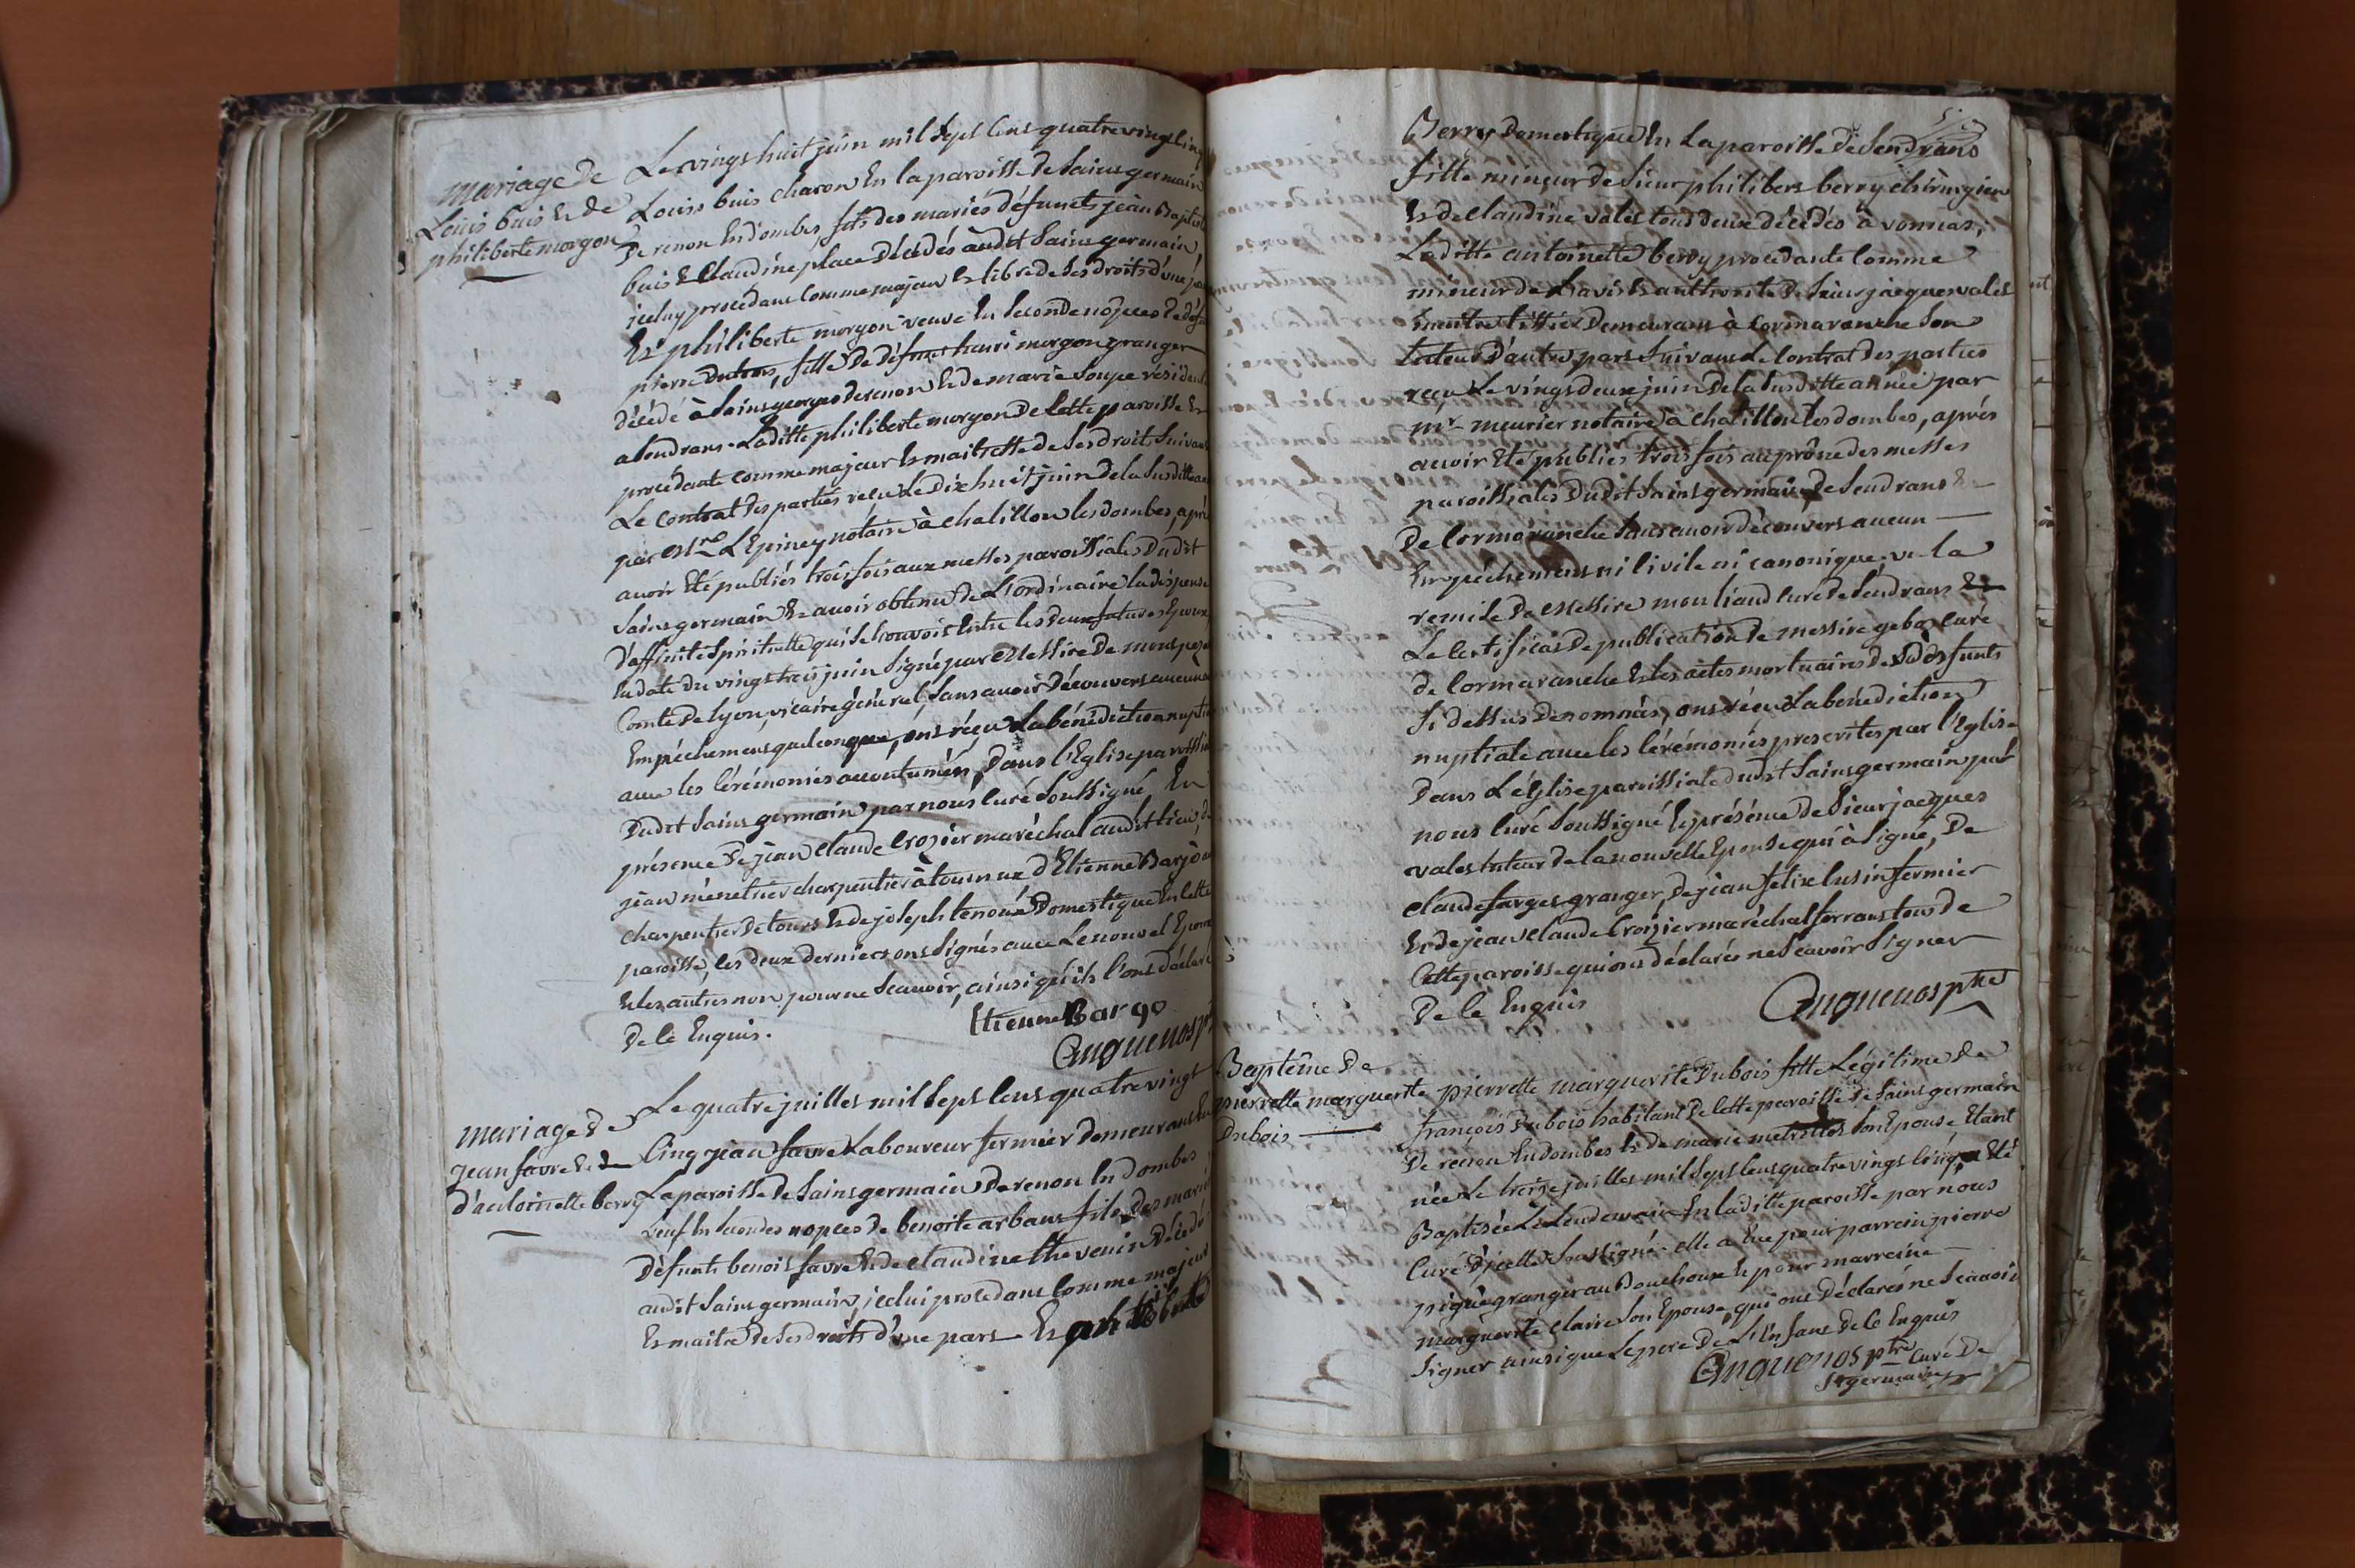 mariage de
Louis buis et de
philiberte morgon
Le vingt huit juin mil sept cens quatre vingt cinq
Louis buis charon en la paroisse de saint germain
De renon en dombes, fils des mariés défunts jean Baptiste
buis et Claudine place décédés audit saint germain,
iceluy procédant comme majeur et libre de ses droits d'une part
Et philiberte morgon veuve en seconde nopces de
pierre fille de défunt henri morgon granger
décédé à saint georges de renon et de marie soupe résident
a sendrans. Laditte philiberte morgon de cette paroisse et
procédante comme majeur et maitresse de ses droits suivant
Le contrat des parties reçu le dix huit juin de la susditte
par Mre L'Epiney notaire à chatillon les dombes, après
avoir été publiés trois fois aux messes paroissiales dudit
saint germain et avoir obtenu de L'ordinaire la dispense
d'affinité spirituelle qui se trouvoit entre les deux futures Epoux
en date du vingt trois juin signé par Messire De
Comte De Lyon, vicaire général sans avoir découvert aucun
Empêchement quelconque, ont reçu La bénédiction
avec les cérémonies accoutumées, Dans l'Eglise paroissiale
Dudit saint germain par nous curé soussigné, En
présence De jean claude crozier maréchal audit lieu, de
jean ménetrier charpentier à d'Etienne Barjo
charpentier De tours et de joseph tenoux Domestique en cette
paroisse, les deux derniers ont signés avec Le nouvel Epoux
et les autres non pour ne scavoir, ainsi qu'ils l'ont déclaré
De ce Enquis.
Etienne Bargo
Anquenos
mariage de
jean favre et de
d'antoinette berry
Le quatre juillet mil sept cens quatre vingt
Cinq jean favre Laboureur fermier demeurant en
La paroisse de saint germain De renon En dombes
veuf en secondes nopces de benoite arbant fils des mariés
Défunts benoit favre et de claudine thevenin décédés
audit saint germain, icelui procedant comme majeur
Et maitre De ses droits d'une part Et
Berry Domestique En La paroisse De sendrans
fille mineur de sieur philibert berry chirurgien
Et de claudine valet tous deux décédés à vonnas,
Laditte antoinette berry procedante Comme
mineur de L'avis et authorité De sieur jacques valet
maitre demeurant à Cormaranche son
tuteur D'autre part suivant Le Contrat des parties
reçu Le vingt deux juin De la susditte année par
mr meurier notaire à chatillon les dombes, après
avoir été publiés trois fois au prône des messes
paroissiales dudit saint germain, De sendrans &
De Cormaranche sans avoir découvert aucun
Empêchement ni Civile ni canonique, vu la
remise De Messire mouliand curé De sendrans et
Le certificat De publication De messire curé
de Cormaranche et les actes mortuaires des défunts
si dessus denommés, ont reçu La bénédiction
nuptiale avec les Cérémonies prescrites par l'Eglise
Dans L'église paroissiale dudit saint germain par
nous Curé soussigné En présence de sieur jacques
valet tuteur de la nouvelle Epouse qui à signé, De
claude farges granger, De jean felix fermier
Et de jean claude Crozier maréchal ferrant tous de
Cette paroisse qui ont déclarés ne scavoir signer
De ce Enquis
Anquenos ptre
Baptême De
pierrette marguerite
Dubois
pierrette marguerite Dubois fille Légitime De
françois Dubois habitant De cette paroisse De saint germain
De renon En dombes et De marie son Epouse Etant
née Le treize juillet mil sept cens quatre vingt cinq, a été
Baptisée Le lendemain En laditte paroisse par nous
Curé D'icelle soussigné. elle a eue pour parrein pierre
granger au Bouchoux et pour marreine
marguerite claire son Epouse, qui ont Déclarés ne scavoir
signer ainsi que Le pere De L'Enfant De ce Enquis
Anquenos ptre Curé De
St germain